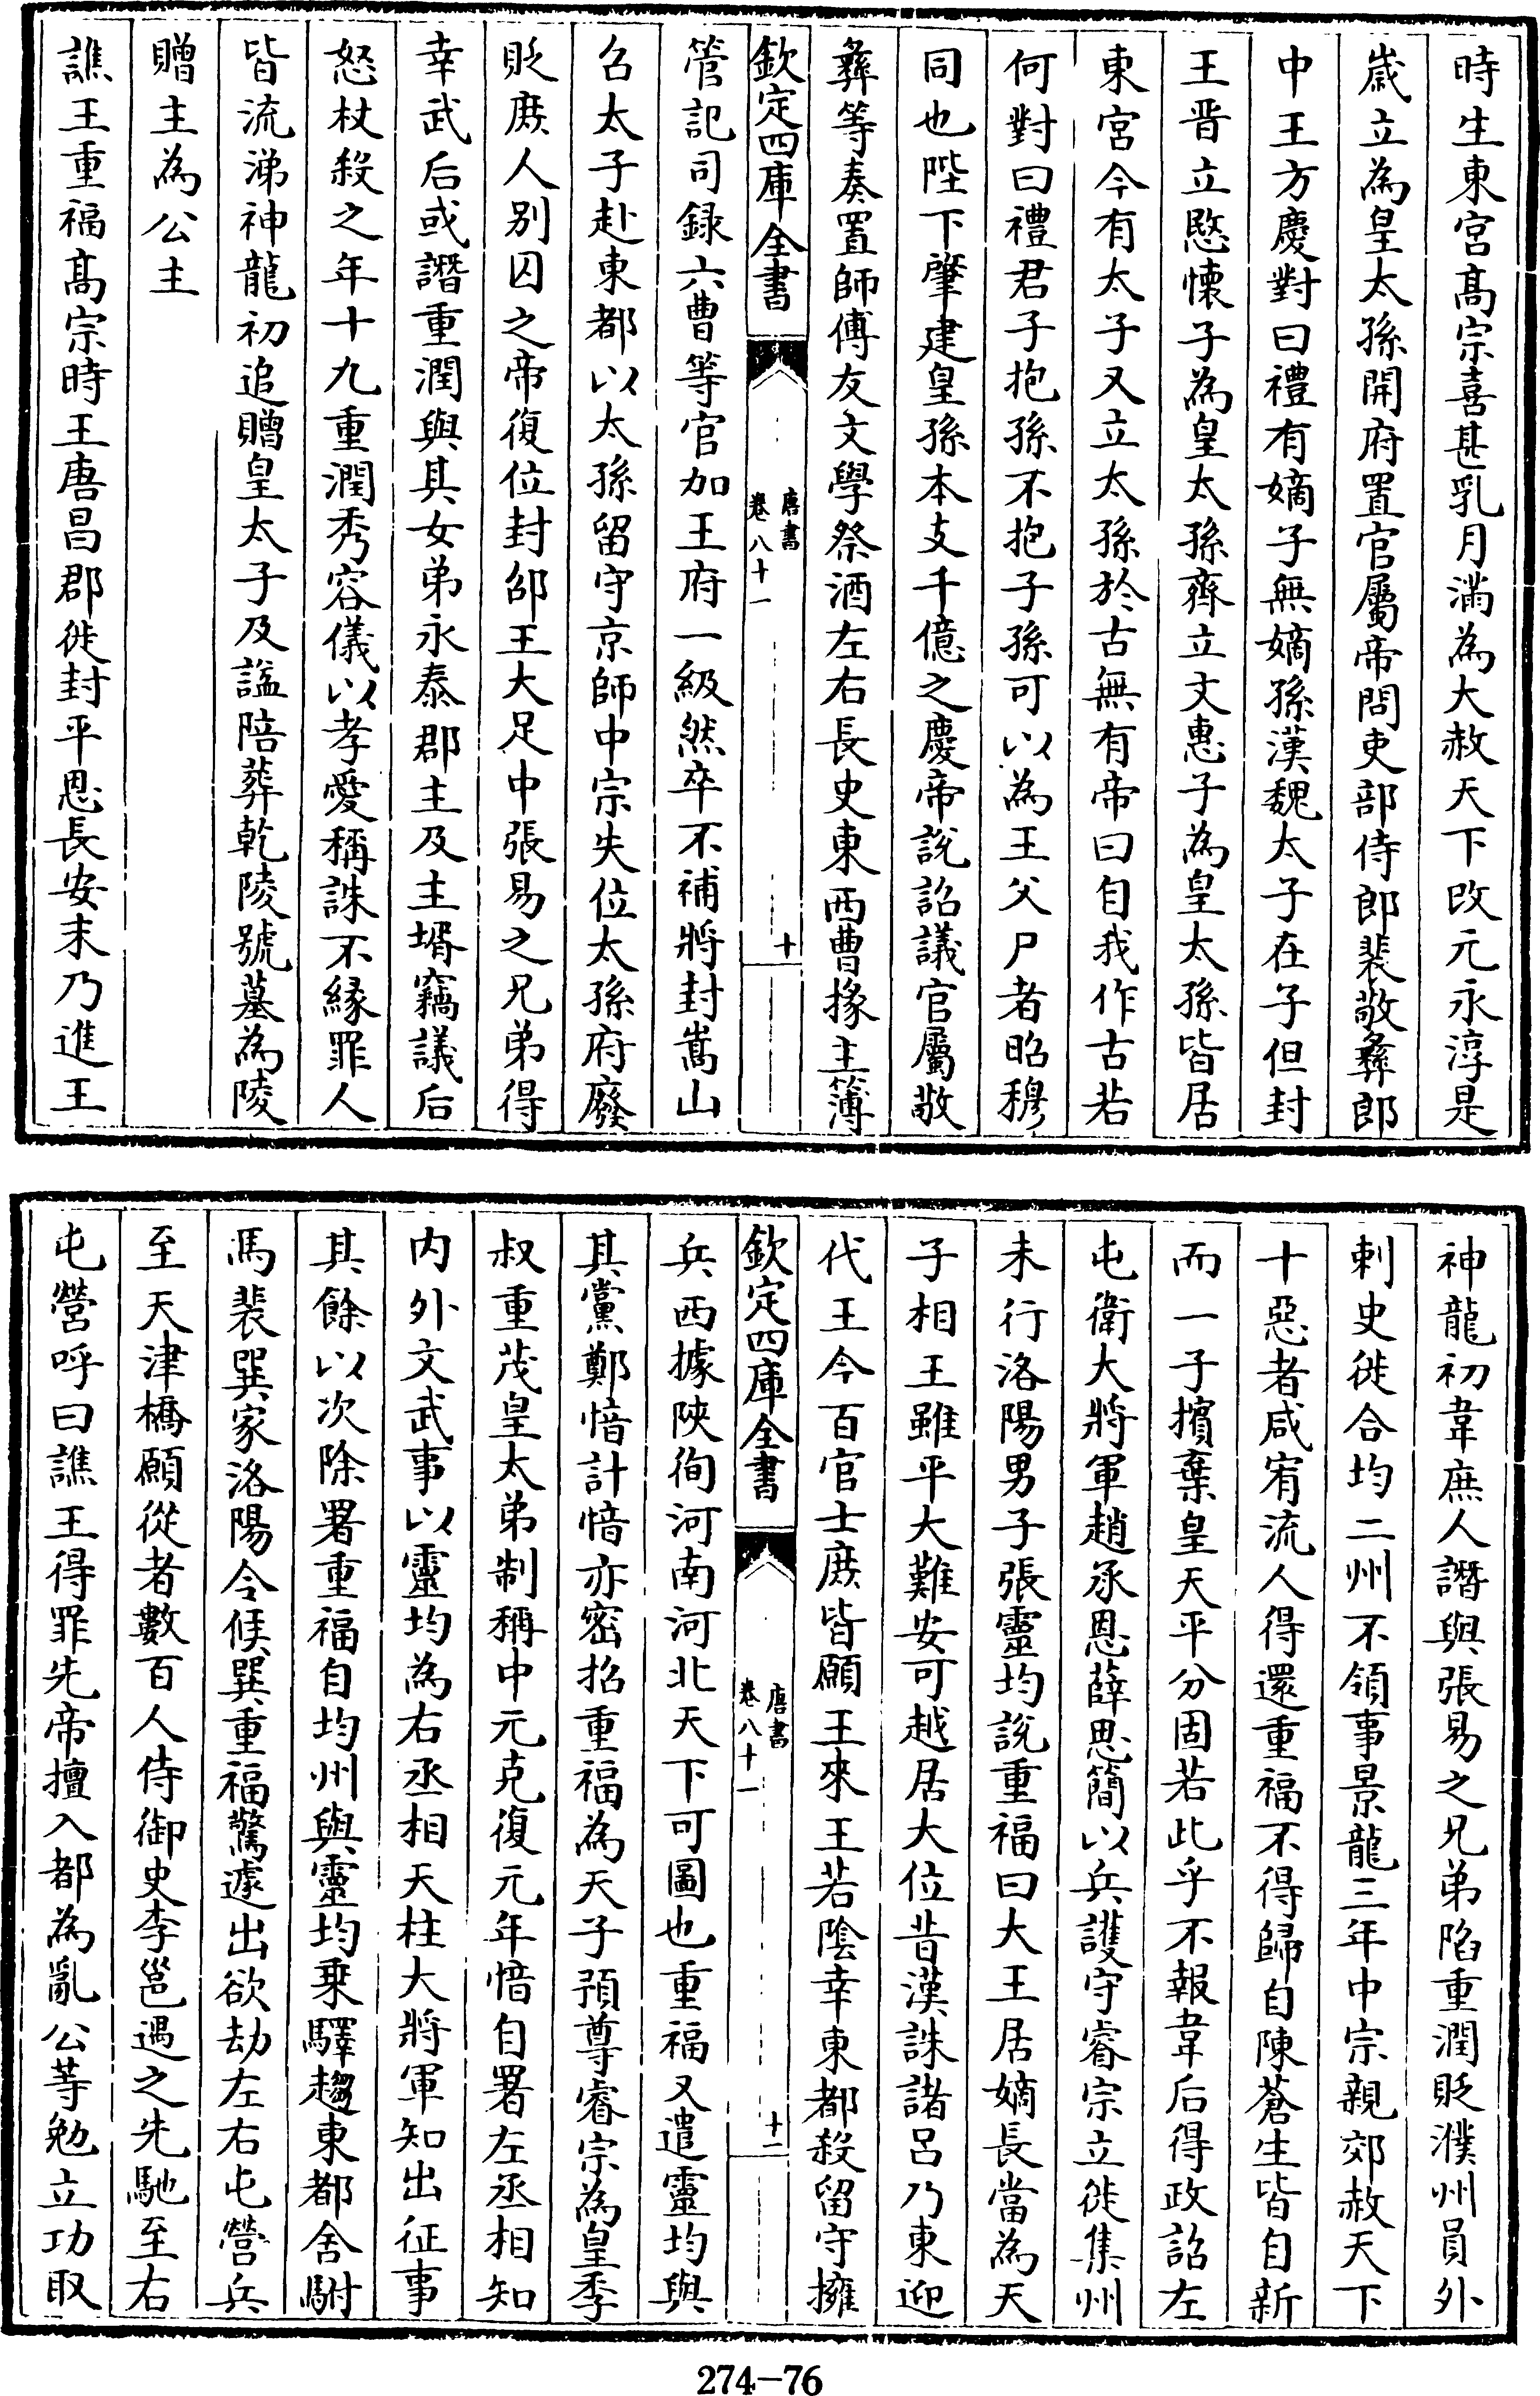 時生東宮髙宗喜甚乳月滿為大赦天下改元永淳是
歳立為皇太孫開府置官屬帝問吏部侍郎裴敬彝郎
中王方慶對曰禮有嫡子無嫡孫漢魏太子在子但封
王晋立愍懷子為皇太孫齊立文惠子為皇太孫皆居
東宮今有太子又立太孫於古無有帝曰自我作古若
何對曰禮君子抱孫不抱子孫可以為王父尸者昭穆
同也陛下肇建皇孫本支千億之慶帝說詔議官屬敬
彝等奏置師傅友文學祭酒左右長史東西曹掾主簿
欽定四庫全書
唐書
卷八十一
十
管記司録六曹等官加王府一級然卒不補將封嵩山
召太子赴東都以太孫留守京師中宗失位太孫府廢
貶庻人别囚之帝復位封邵王大足中張易之兄弟得
幸武后或譖重潤與其女弟永泰郡主及主壻竊議后
怒杖殺之年十九重潤秀容儀以孝愛稱誅不緣罪人
皆流涕神龍初追贈皇太子及諡陪葬乾陵號墓為陵
贈主為公主
譙王重福髙宗時王唐昌郡徙封平恩長安末乃進王
神龍初韋庶人譖與張易之兄弟陷重潤貶濮州員外
刺史徙合均二州不領事景龍三年中宗親郊赦天下
十惡者咸宥流人得還重福不得歸自陳蒼生皆自新
而一子擯棄皇天平分固若此乎不報韋后得政詔左
屯衛大將軍趙承恩薛思簡以兵護守睿宗立徙集州
未行洛陽男子張靈均說重福曰大王居嫡長當為天
子相王雖平大難安可越居大位昔漢誅諸呂乃東迎
代王今百官士庻皆願王來王若陰幸東都殺留守擁
欽定四庫全書
唐書
卷八十一
十二
兵西據陜徇河南河北天下可圖也重福又遣靈均與
其黨鄭愔計愔亦密招重福為天子預尊睿宗為皇季
叔重茂皇太弟制稱中元克復元年愔自署左丞相知
内外文武事以靈均為右丞相天柱大將軍知出征事
其餘以次除署重福自均州與靈均乗驛趨東都舍駙
馬裴巽家洛陽令候巽重福驚遽出欲劫左右屯營兵
至天津橋願從者數百人侍御史李邕遇之先馳至右
屯營呼曰譙王得罪先帝擅入都為亂公等勉立功取
274-76